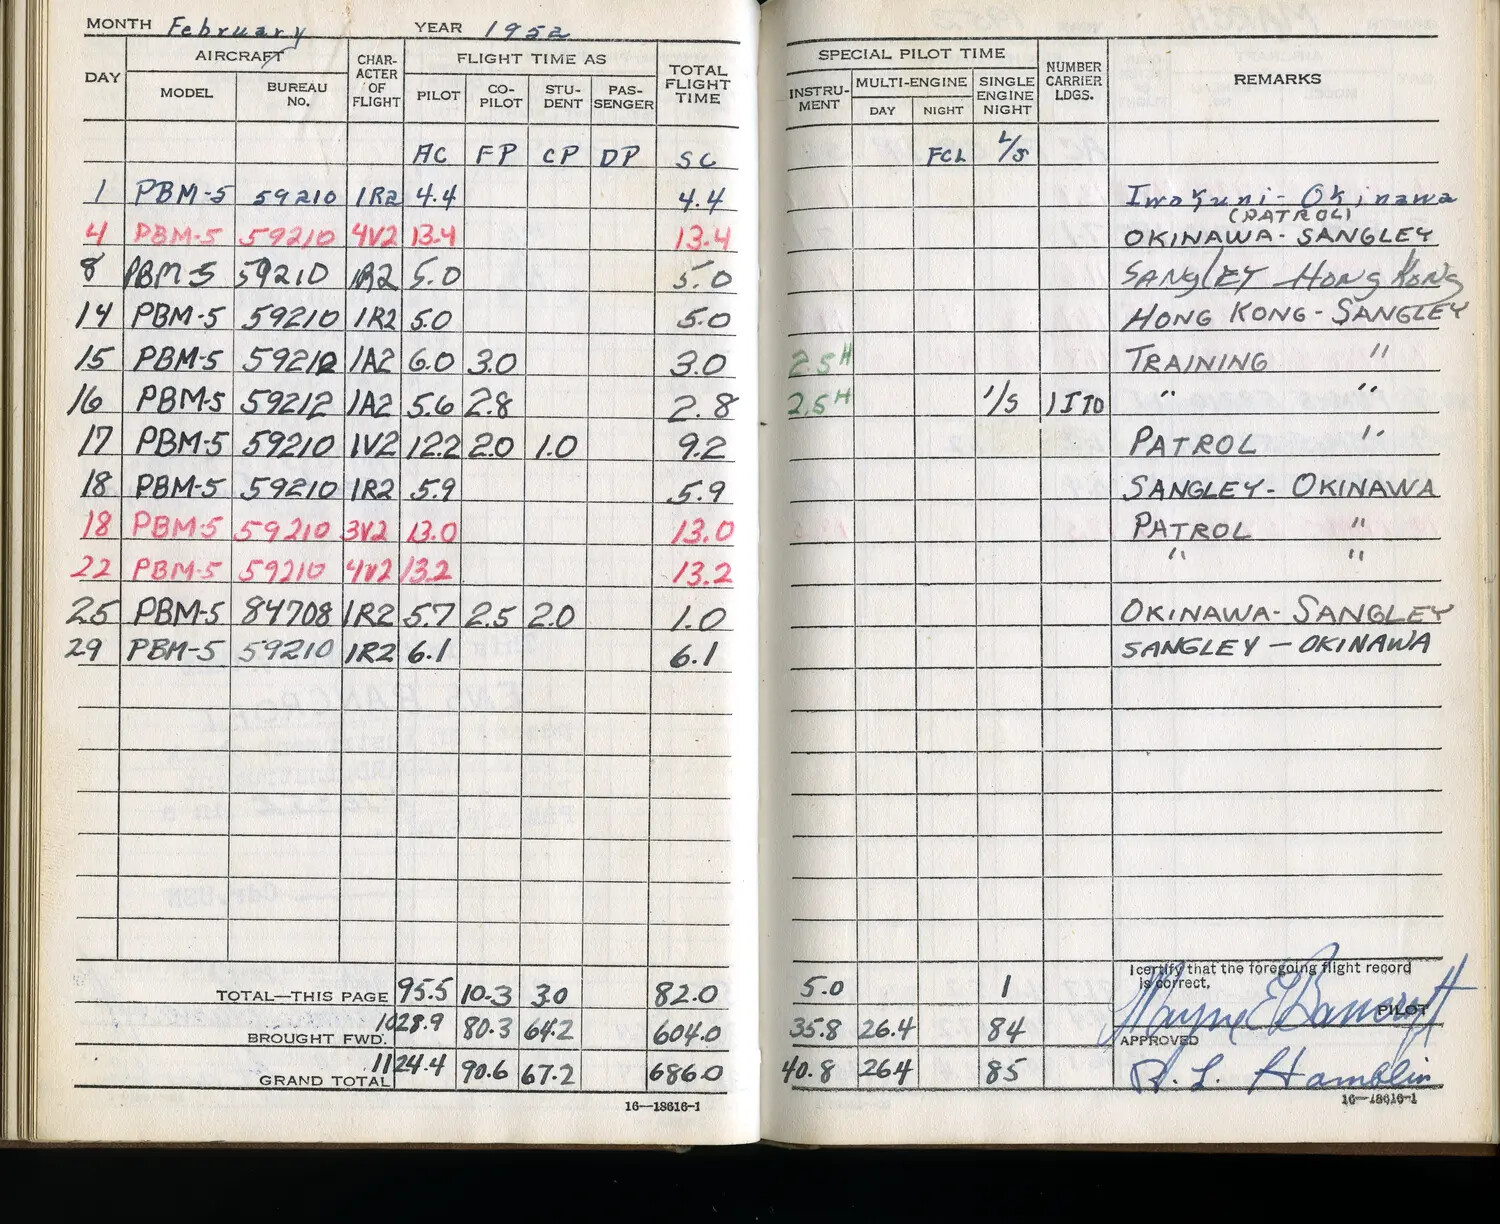 MONTH February YEAR 1952
DAY AIRCRAFT CHAR-ACTER OF FLIGHT FLIGHT TIME AS TOTAL FLIGHT TIME
MODEL BUREAU No. PILOT CO-PILOT STU-DENT PAS-SENGER
AC FP CP DP SC
1 PBM-5 59210 1R2 4.4 4.4
4 PBM-5 59210 4V2 13.4 13.4
8 PBM-5 59210 1R2 5.0 5.0
14 PBM-5 59210 1R2 5.0 5.0
15 PBM-5 59212 1A2 6.0 3.0 3.0
16 PBM-5 59212 1A2 5.6 2.8 2.8
17 PBM-5 59210 1V2 12.2 2.0 1.0 9.2
18 PBM-5 59210 1R2 5.9 5.9
18 PBM-5 59210 3V2 13.0 13.0
22 PBM-5 59210 4V2 13.2 13.2
25 PBM-5 84708 1R2 5.7 2.5 2.0 1.0
29 PBM-5 59210 1R2 6.1 6.1
TOTAL—THIS PAGE 95.5 10.3 3.0 82.0
BROUGHT FWD. 1028.9 80.3 64.2 604.0
GRAND TOTAL 1124.4 90.6 67.2 686.0
16—18616-1
SPECIAL PILOT TIME NUMBER CARRIER LDGS. REMARKS
INSTRU-MENT MULTI-ENGINE SINGLE ENGINE NIGHT
DAY NIGHT
FCL L/S
Iwakuni - Okinawa
(PATROL)
OKINAWA - SANGLEY
SANGLEY - HONG KONG
HONG KONG - SANGLEY
2.5H TRAINING "
2.5H 1/S 1 ITO " "
PATROL "
SANGLEY - OKINAWA
PATROL "
" "
OKINAWA - SANGLEY
SANGLEY — OKINAWA
I certify that the foregoing flight record
is correct.
5.0 1
Wayne E Bancroft PILOT
35.8 26.4 84
APPROVED
40.8 26.4 85 H. L. Hamblin
16—18616-1